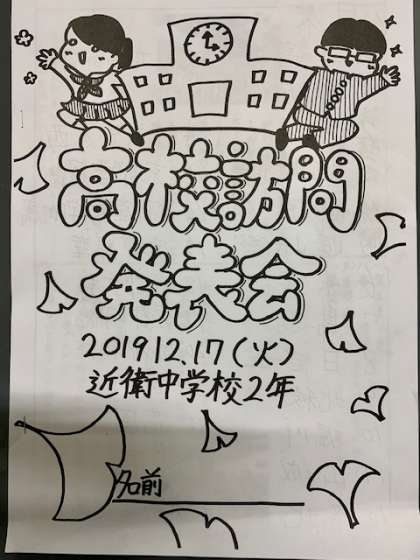 高校訪問
発表会
2019 12.17(火)
近衛中学校2年
名前